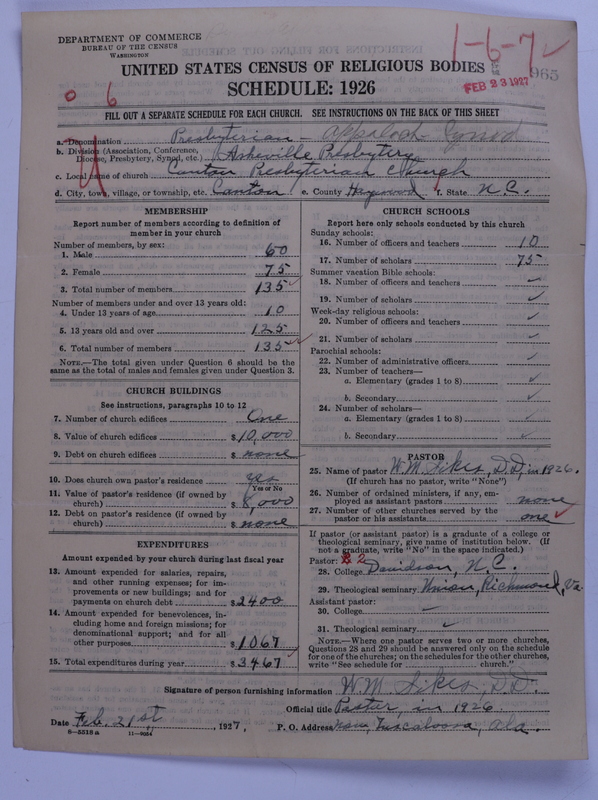 DEPARTMENT OF COMMERCE
BUREAU OF THE CENSUS
WASHINGTON
1-6-7
965
FEB 23 1927
UNITED STATES CENSUS OF RELIGIOUS BODIES
SCHEDULE: 1926
06
FILL OUT A SEPARATE SCHEDULE FOR EACH CHURCH. SEE INSTRUCTIONS ON THE BACK OF THIS SHEET
a. Denomination Presbyterian - Appalach Synod
b. Division (Association, Conference, Diocese, Presbytery, Synod, etc.) Asheville Presbytery
c. Local name of church Canton Presbyterian Church
d. City, town, village, or township, etc. Canton e. County Haywood f. State N.C.
MEMBERSHIP
Report number of members according to definition of member in your church
Number of members, by sex:
1. Male 60
2. Female 75
3. Total number of members 135
Number of members under and over 13 years old:
4. Under 13 years of age 10
5. 13 years old and over 125
6. Total number of members 135
NOTE.—The total given under Question 6 should be the same as the total of males and females given under Question 3.
CHURCH BUILDINGS
See instructions, paragraphs 10 to 12
7. Number of church edifices One
8. Value of church edifices $10,000
9. Debt on church edifices $ none
10. Does church own pastor's residence yes
Yes or No
11. Value of pastor's residence (if owned by church) $8,000
12. Debt on pastor's residence (if owned by church) $ none
EXPENDITURES
Amount expended by your church during last fiscal year
13. Amount expended for salaries, repairs, and other running expenses; for improvements or new buildings; and for payments on church debt $2400
14. Amount expended for benevolences, including home and foreign missions; for denominational support; and for all other purposes $1067
15. Total expenditures during year $3467
CHURCH SCHOOLS
Report here only schools conducted by this church
Sunday schools:
16. Number of officers and teachers 10
17. Number of scholars 75
Summer vacation Bible schools:
18. Number of officers and teachers
19. Number of scholars
Week-day religious schools:
20. Number of officers and teachers
21. Number of scholars
Parochial schools:
22. Number of administrative officers
23. Number of teachers—
a. Elementary (grades 1 to 8)
b. Secondary
24. Number of scholars—
a. Elementary (grades 1 to 8)
b. Secondary
PASTOR
25. Name of pastor W.M. Sikes, D.D, in 1926.
(If church has no pastor, write "None")
26. Number of ordained ministers, if any, employed as assistant pastors none
27. Number of other churches served by the pastor or his assistants one
If pastor (or assistant pastor) is a graduate of a college or theological seminary, give name of institution below. (If not a graduate, write "No" in the space indicated.)
Pastor: 2
28. College Davidson, N.C.
29. Theological seminary Union, Richmond, Va.
Assistant pastor:
30. College
31. Theological seminary
NOTE.—Where one pastor serves two or more churches, Questions 28 and 29 should be answered only on the schedule for one of the churches; on the schedules for the other churches, write "See schedule for church."
Signature of person furnishing information W.M. Sikes, D.D.
Official title Pastor, in 1926
Date Feb. 21st, 1927, P. O. Address now, Tuscaloosa, Ala.
8—5518 a 11—9054